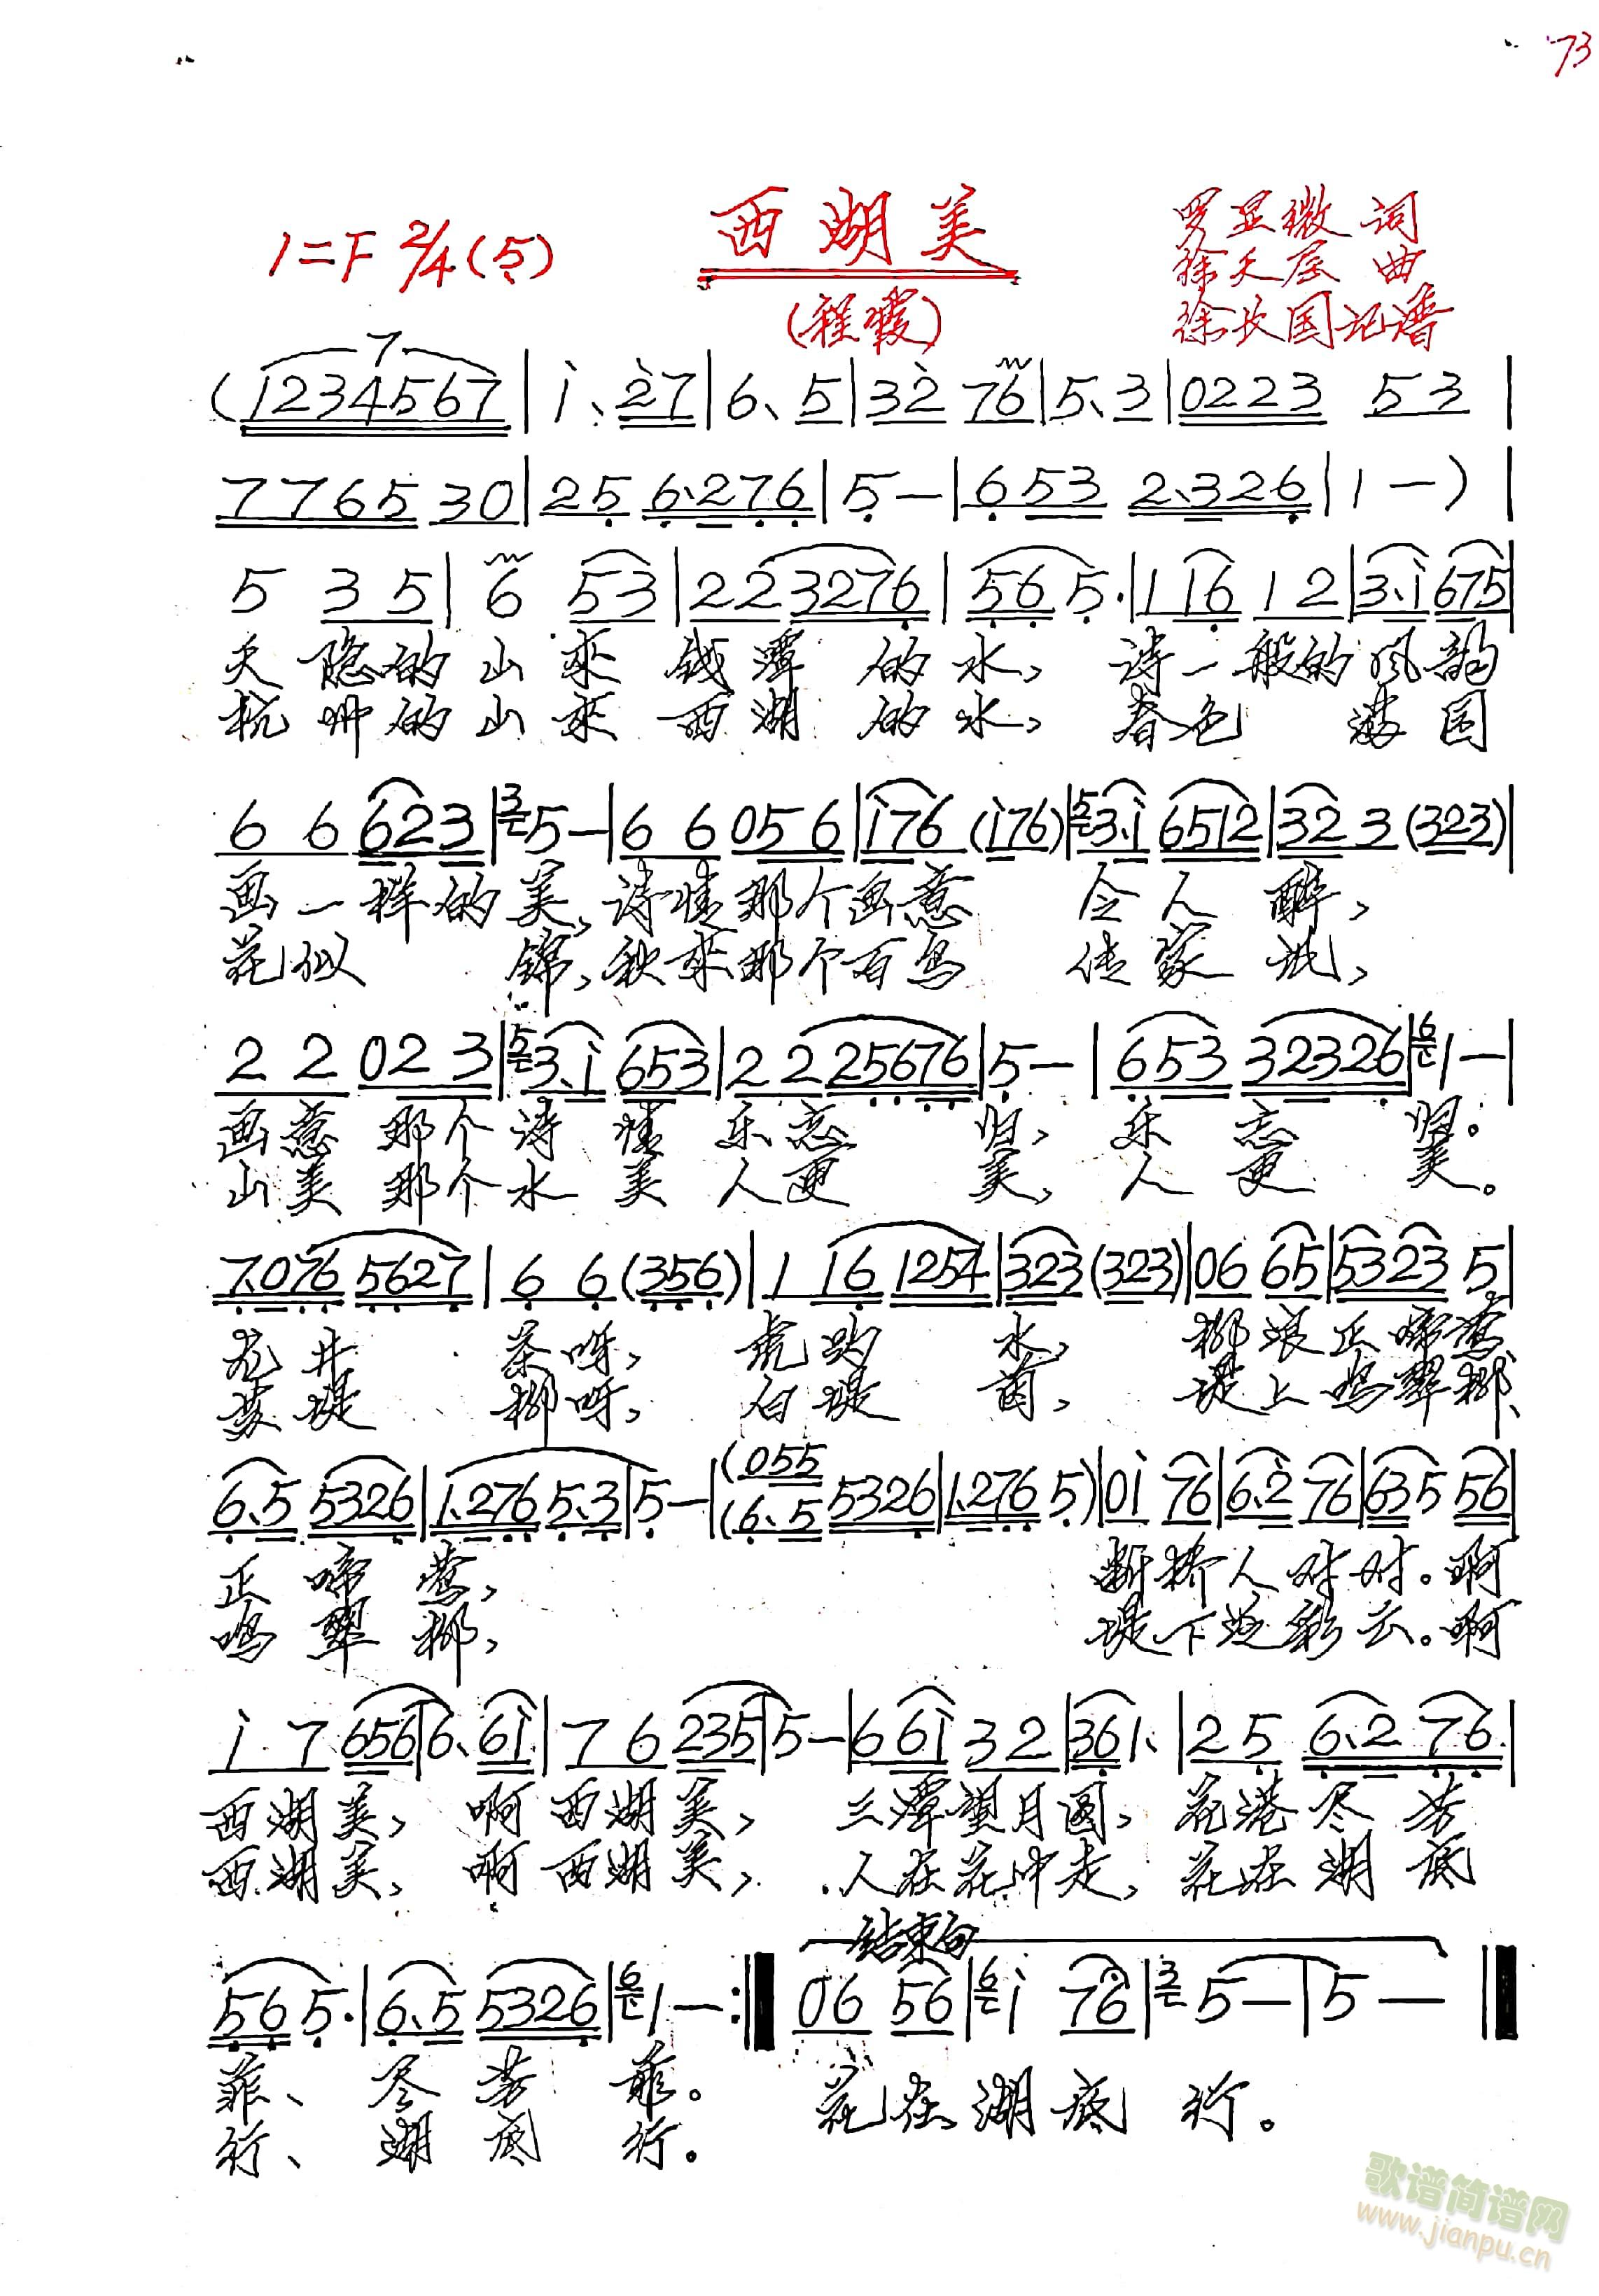 73
西湖美
1=F 2/4 (5̣)
罗显微 词
徐天原 曲
(程霞)
徐长国记谱
7
(1234567 | i、27 | 6、5 | 32 76 | 5、3 | 0223 53 |
7765 30 | 25 6、276 | 5 — | 653 2、326 | 1 — ) |
5 35 | 6 53 | 22 3276 | 56 5· | 116 12 | 3、i 675 |
天隐的山来钱潭的水、诗一般的风韵
杭州的山来西湖的水、春色满园
66 623 | 5 — | 66 056 | i76 (i76) | 3、i 6512 | 32 3 (323) |
画一样的美、诗情那个画意 令人醉,
花似锦、秋来那个百鸟 传家
22 023 | 3、i 653 | 22 25676 | 5 — | 653 32326 | 1 — |
画意那个诗情乐忘归、乐忘归。
山美那个水美人更美、人更美。
7、076 5627 | 66 (356) | 1 16 1254 | 323 (323) | 06 65 | 5323 5 |
龙井茶呀, 虎跑水, 柳浪正啼莺、
苏堤柳呀, 白堤茵, 堤上鸣翠柳、
6、5 5326 | 1、276 5、3 | 5 — | (055
(6、5 5326 | 1、276 5) | 0i 76 | 6、2 76 | 635 56 |
正啼莺, 断桥人对对。啊
鸣翠柳, 堤下泛彩云。啊
i 7 656 | 6、6i | 76 235 | 5 — | 66i 32 | 36 1、 | 25 6、2 76 |
西湖美, 啊西湖美, 三潭望月圆, 花港尽芳
西湖美, 啊西湖美, 人在花中走, 花在湖底
结束句
56 5· | 6、5 5326 | 1 — :‖ 06 56 | i 76 | 5 — | 5 — ‖
菲、尽芳菲。 花在湖底行。
行、湖底行。
歌谱简谱网
www.jianpu.cn